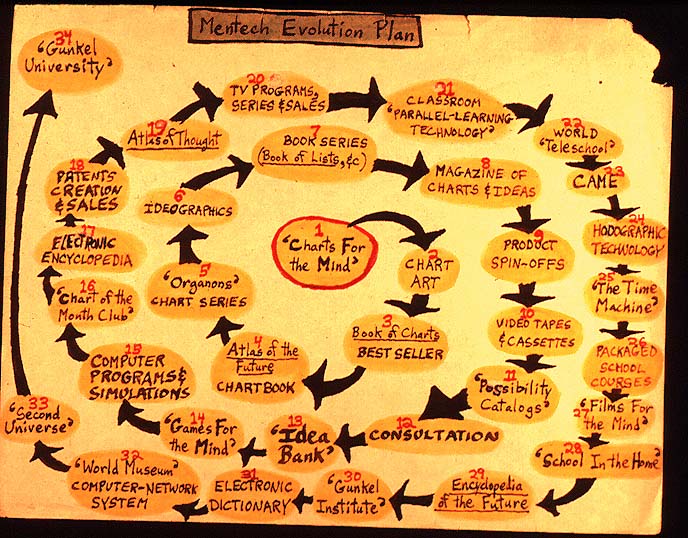 Mentech Evolution Plan
1
"Charts For
the Mind"
2
CHART
ART
3
Book of Charts
BEST SELLER
4
Atlas of the
Future
CHARTBOOK
5
"Organons"
CHART SERIES
6
IDEOGRAPHICS
7
BOOK SERIES
(Book of Lists, &c)
8
MAGAZINE OF
CHARTS & IDEAS
9
PRODUCT
SPIN-OFFS
10
VIDEO TAPES
& CASSETTES
11
"Possibility
Catalogs"
12
CONSULTATION
13
"Idea
Bank"
14
"Games For
the Mind"
15
COMPUTER
PROGRAMS &
SIMULATIONS
16
"Chart of the
Month Club"
17
ELECTRONIC
ENCYCLOPEDIA
18
PATENTS
CREATION
& SALES
19
Atlas of Thought
20
TV PROGRAMS,
SERIES & SALES
21
CLASSROOM
"PARALLEL-LEARNING
TECHNOLOGY"
22
WORLD
"Teleschool"
23
CAME
24
HODOGRAPHIC
TECHNOLOGY
25
"The Time
Machine"
26
PACKAGED
SCHOOL
COURSES
27
"Films For
the Mind"
28
"School In the Home"
29
Encyclopedia
of the Future
30
"Gunkel
Institute"
31
ELECTRONIC
DICTIONARY
32
"World Museum"
COMPUTER-NETWORK
SYSTEM
33
"Second
Universe"
34
"Gunkel
University"